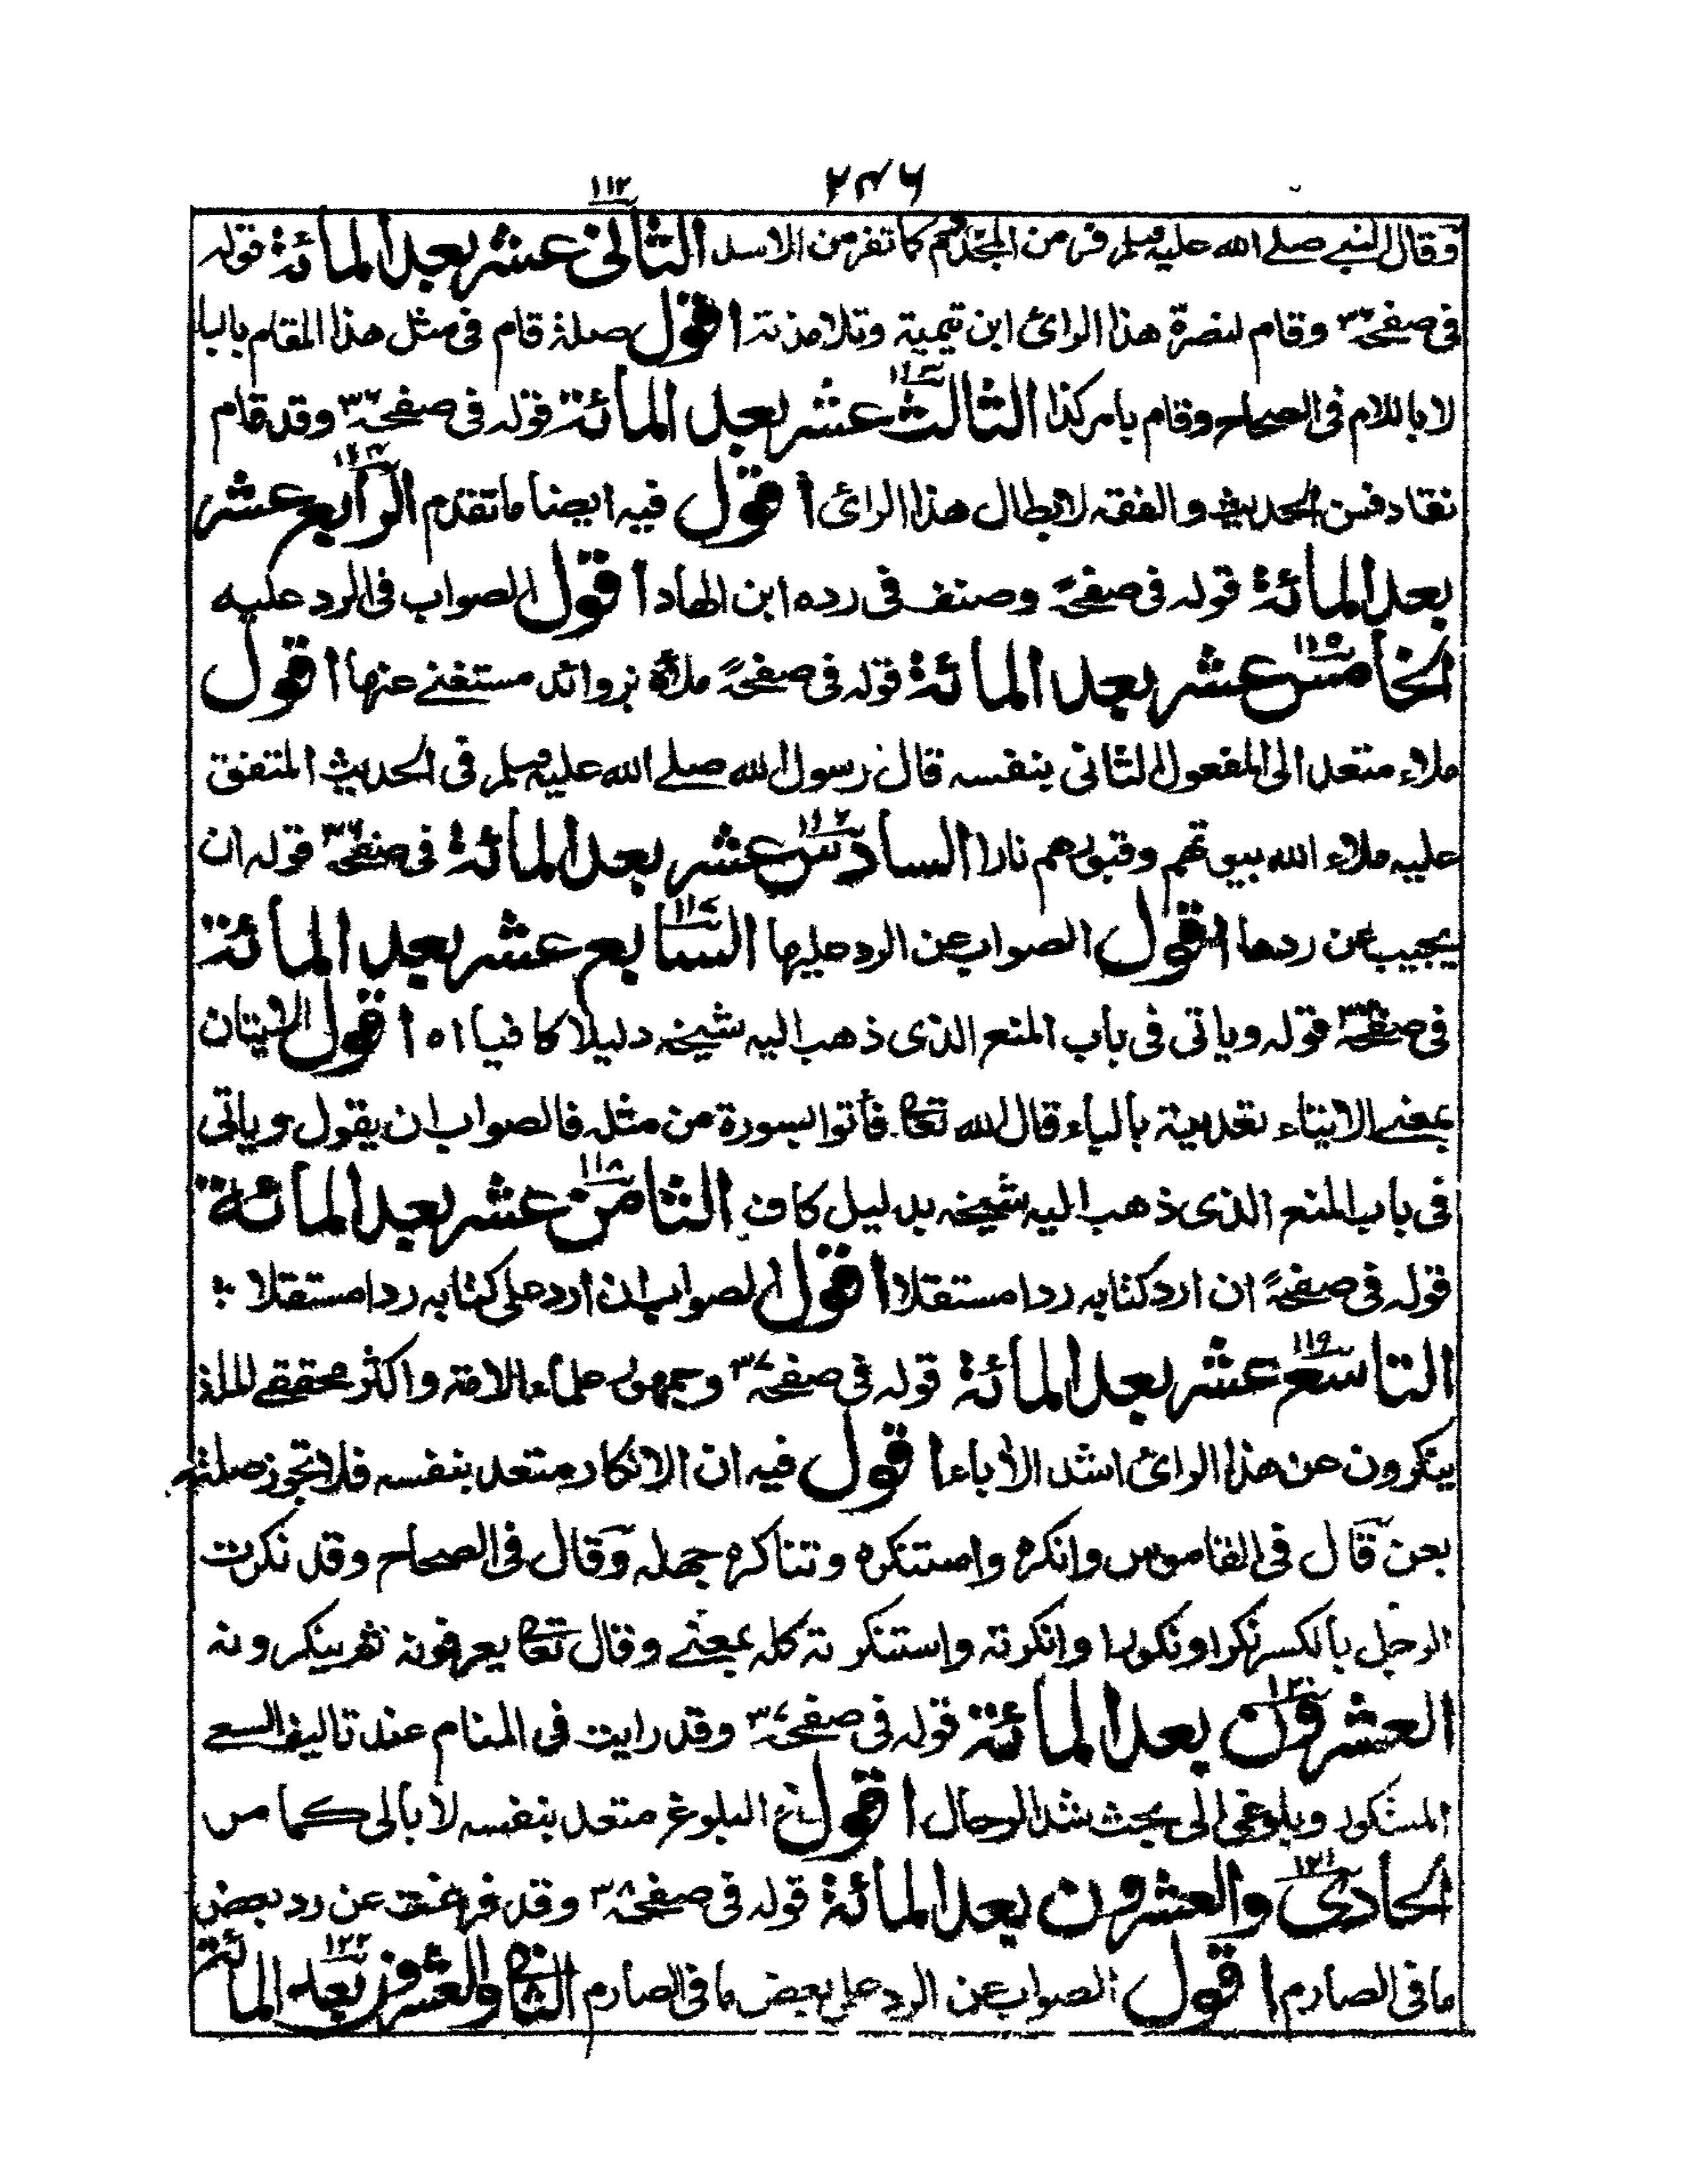 ۲۴۶
۱۱۲
وقال النبي صلے الله عليه وسلم فر من المجذوم كما تفر من الاسد الثانى عشر بعد المائة قوله
فى صفحة ۳۶ وقام لنصرة هذا الرائ ابن تيمية وتلامذته اقول صلة قام فى مثل هذا المقام بالباء
۱۱۳
لا باللام فى الصحاح وقام بامر كذا الثالث عشر بعد المائة قوله فى صفحة ۳۶ وقد قام
۱۱۴
نقاد فن الحديث والفقه لابطال هذا الرائ اقول فيه ايضا ما تقدم الرابع عشر
بعد المائة قوله فى صفحة وصنف فى رده ابن الهاد اقول الصواب فى الرد عليه
۱۱۵
الخامس عشر بعد المائة قوله فى صفحة ملأه بزوائد مستغنے عنها اقول
ملاء متعد الى المفعول الثانى بنفسه قال رسول الله صلے الله عليه وسلم فى الحديث المتفق
۱۱۶
عليه ملاء الله بيوتهم وقبورهم نارا السادس عشر بعد المائة فى صفحة ۳۶ قوله ان
۱۱۷
يجيب عن ردها اقول الصواب عن الرد عليها السابع عشر بعد المائة
فى صفحة ۳۶ قوله وياتى فى باب المنع الذى ذهب اليه شيخه دليلا كافيا اه اقول الاتيان
بمعنے الايتاء تعديته بالباء قال الله تعالى فأتوا بسورة من مثله فالصواب ان يقول وياتى
۱۱۸
فى باب المنع الذى ذهب اليه شيخه بدليل كاف الثامن عشر بعد المائة
قوله فى صفحة ان ارد كتابه ردا مستقلا اقول الصواب ان ارد على كتابه ردا مستقلا
۱۱۹
التاسع عشر بعد المائة قوله فى صفحة ۳۷ وجمهور علماء الامة واكثر محققے الملة
ينكرون عن هذا الرائ اشد الأباء اقول فيه ان الانكار متعد بنفسه فلا تجوز صلته
بعن قال فى القاموس وانكره واستنكره وتناكره جهله وقال فى الصحاح وقد نكرت
الرجل بالكسر نكرا ونكورا وانكرته واستنكرته كله بمعنے وقال تعالى يعرفونه ثم ينكرونه
۱۲۰
العشرون بعد المائة قوله فى صفحة ۳۷ وقد رايت فى المنام عند تاليف السعے
المشكور وبلوغى الى بحث شد الرحال اقول البلوغ متعد بنفسه لا بالى كما مر
۱۲۱
الحادى والعشرون بعد المائة قوله فى صفحة ۳۸ وقد فرغت عن رد بعض
۱۲۲
ما فى الصارم اقول الصواب عن الرد على بعض ما فى الصارم الثانى والعشرون بعد المائة